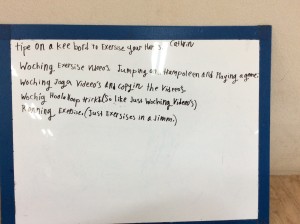 tipe on a kee bord to Exercise your Hands. Catlyn
Woching Exercise videos. Jumping on trampoleen and Playing a game.
Woching Joga Video's and copyin the Videos.
Wochig Hoola hoop tricks (So like Just Woching Video's)
Running Exercise. (Just Exersises in a Jimm.)